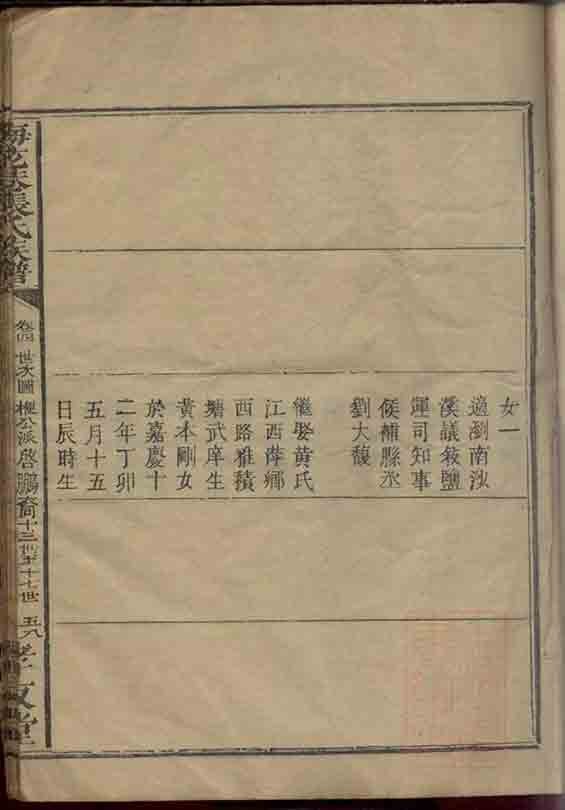 女一
適瀏南洑
溪議敘鹽
運司知事
候補縣丞
劉大馥
繼娶黃氏
江西萍鄉
西路雅積
塘武庠生
黃本剛女
於嘉慶十
二年丁卯
五月十五
日辰時生
張氏族譜
卷四 世次圖 公派啓鵬裔十三世至十七世 五八
孝友堂